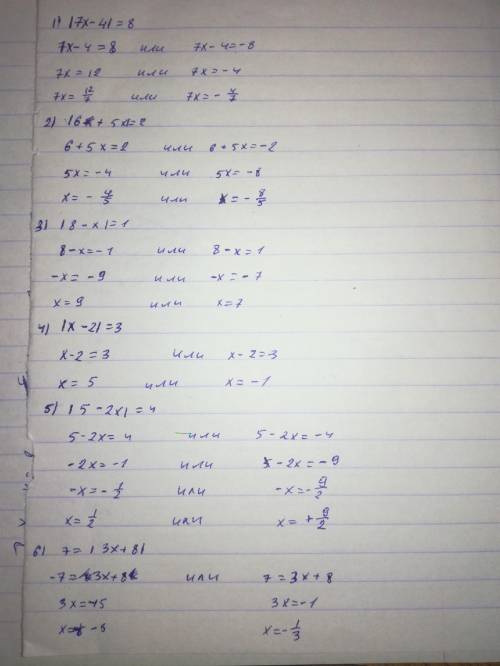 1) |7x-4|=8
7x-4=8 или 7x-4=-8
7x=12 или 7x=-4
7x=12/7 или 7x=-4/7
2) |6+5x|=2
6+5x=2 или 6+5x=-2
5x=-4 или 5x=-8
x=-4/5 или x=-8/5
3) |8-x|=1
8-x=-1 или 8-x=1
-x=-9 или -x=-7
x=9 или x=7
4) |x-2|=3
x-2=3 или x-2=-3
x=5 или x=-1
5) |5-2x|=4
5-2x=4 или 5-2x=-4
-2x=-1 или -2x=-9
-x=-1/2 или -x=-9/2
x=1/2 или x=+9/2
6) 7=|3x+8|
-7=3x+8 или 7=3x+8
3x=-15 3x=-1
x=-5 x=-1/3